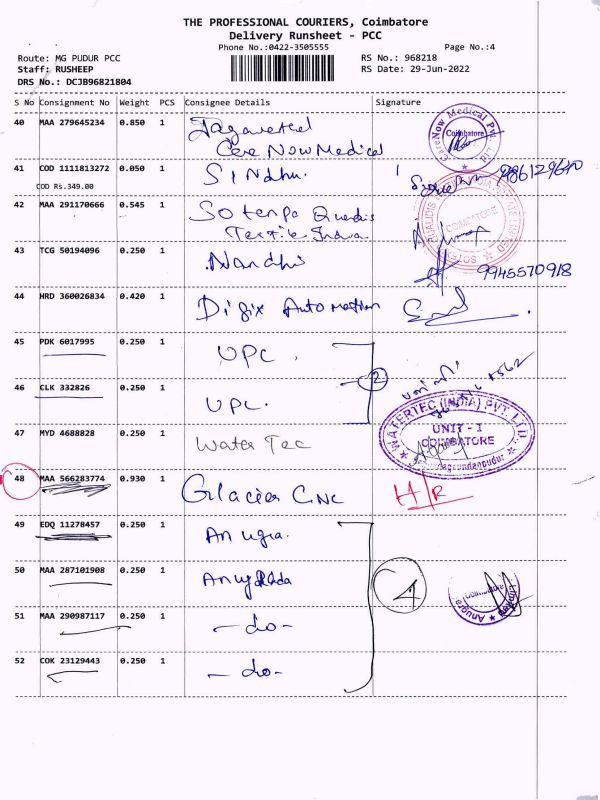 THE PROFESSIONAL COURIERS, Coimbatore
Delivery Runsheet - PCC
Phone No.:0422-3505555
Page No.:4
Route: MG PUDUR PCC
RS No.: 968218
Staff: RUSHEEP
RS Date: 29-Jun-2022
DRS No.: DCJB96821804
S No Consignment No Weight PCS Consignee Details Signature
40 MAA 279645234 0.850 1
Care Now Medical
CareNow Medical Pvt Coimbatore
41 COD 1111813272 0.050 1 Sindhu.
COD Rs.349.00
42 MAA 291170666 0.545 1
Textile India
COIMBATORE
43 TCG 50194096 0.250 1 Nandhi 9945570918
44 HRD 360026834 0.420 1 Digix Automation
45 PDK 6017995 0.250 1 UPC.
2
46 CLK 332826 0.250 1 UPC.
47 MYD 4688828 0.250 1 Water Tec
WATERTEC (INDIA) PVT. LTD
UNIT - I
COIMBATORE
48 MAA 566283774 0.930 1 Glacier CNC H/R
49 EDQ 11278457 0.250 1 Anugra.
50 MAA 287101908 0.250 1
51 MAA 290987117 0.250 1 - do -
52 COK 23129443 0.250 1 - do -